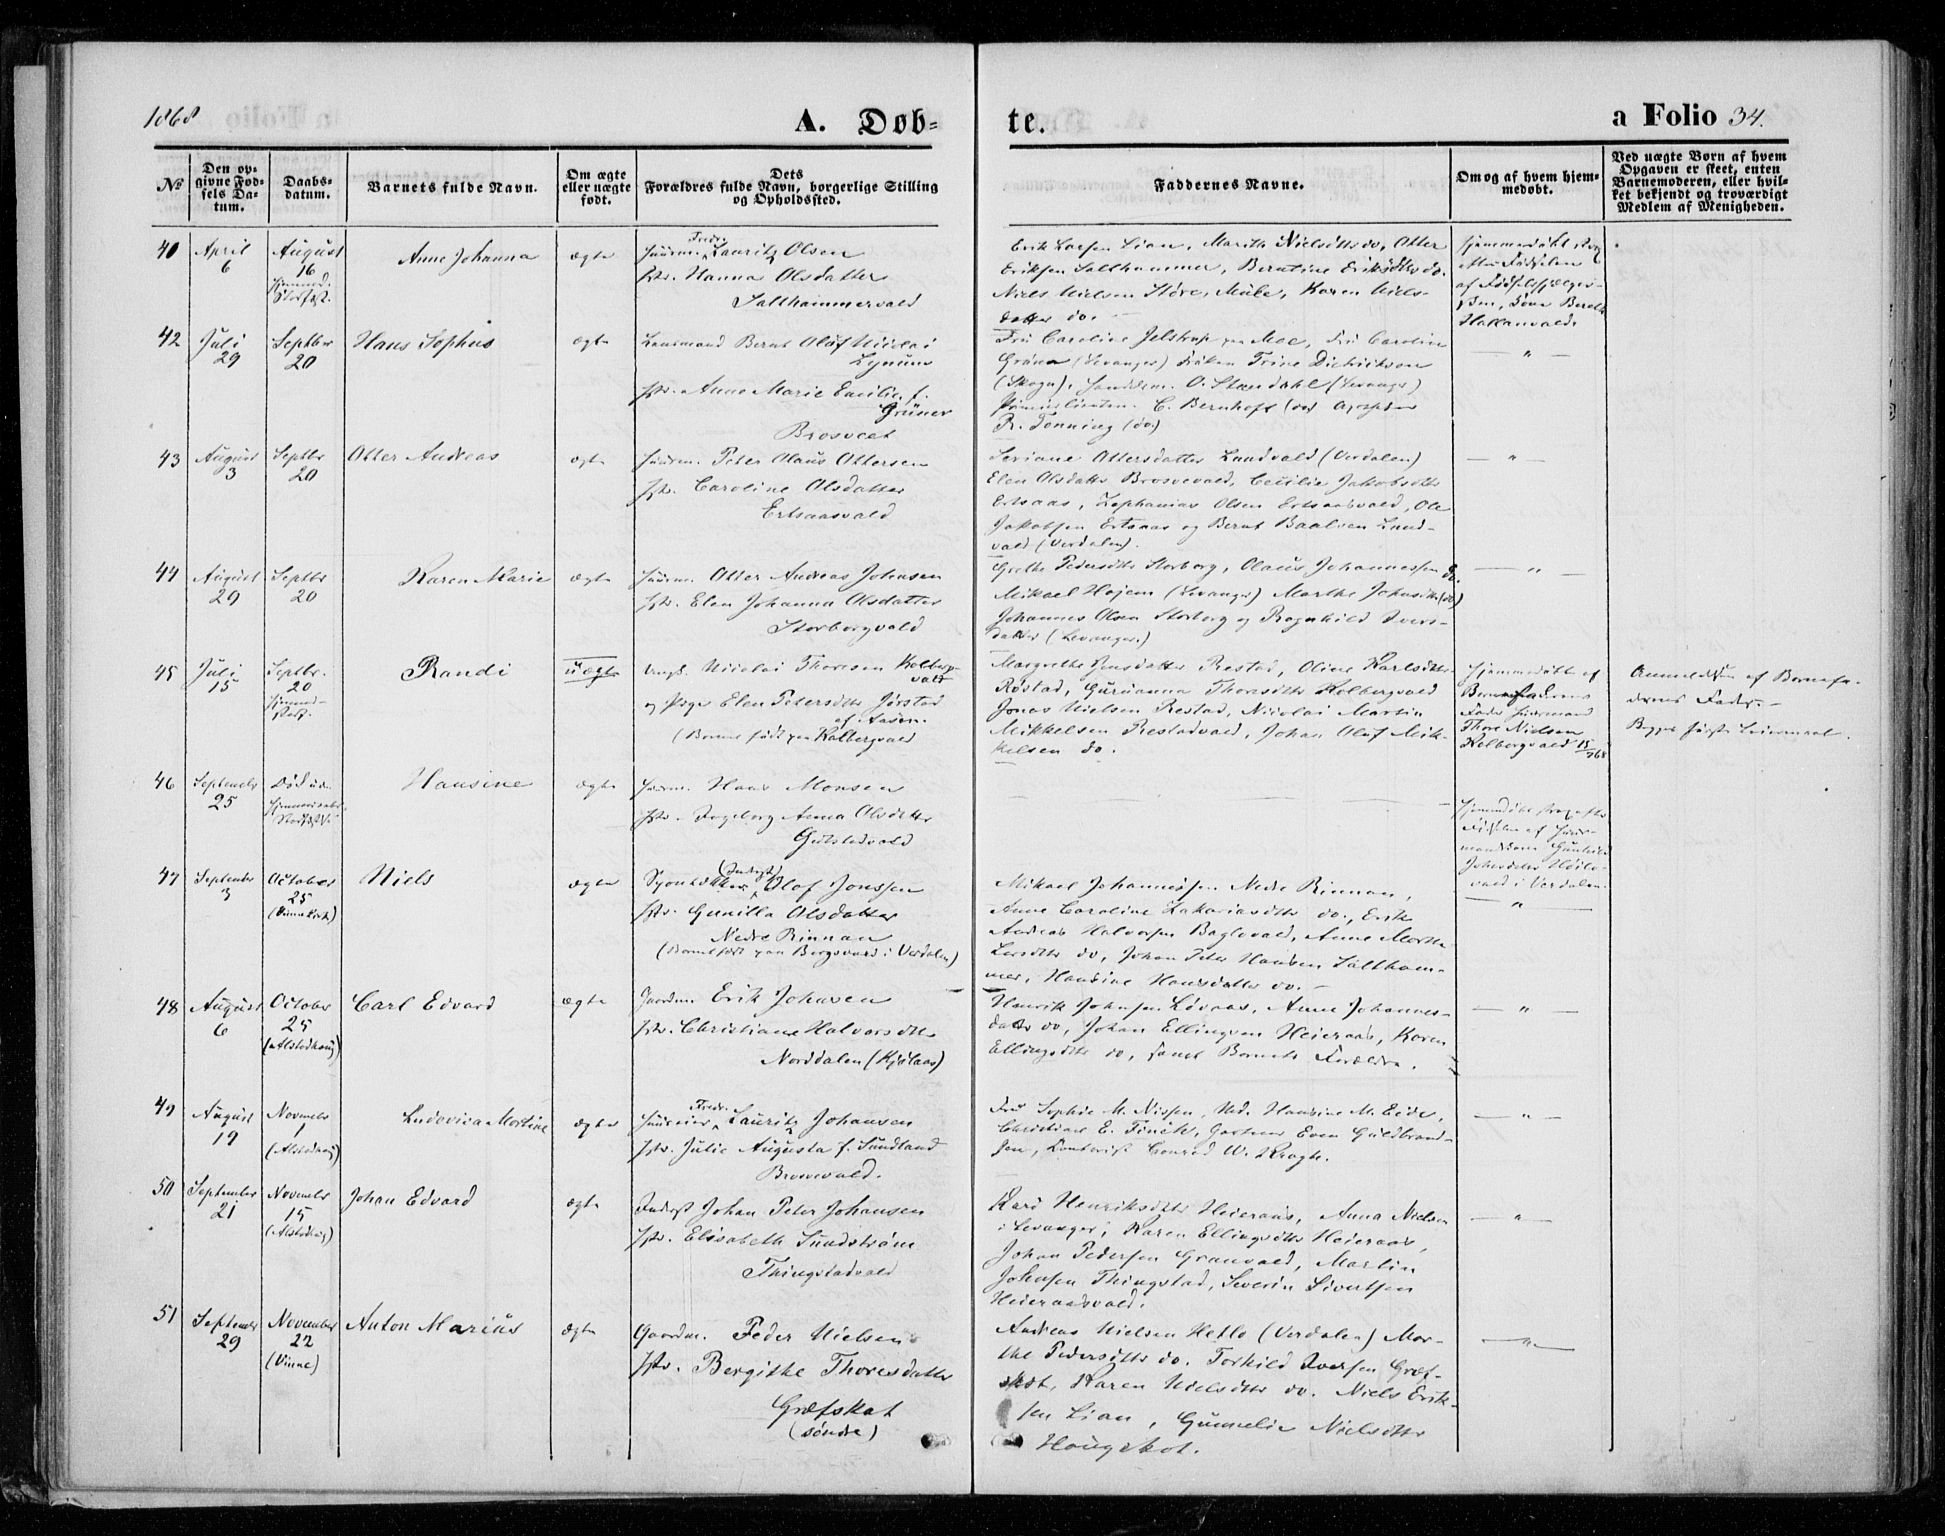 1868
A. Døb-
te.
a Folio 34.
No
Den op-
givne Fød-
sels Da-
tum.
Daabs-
datum.
Barnets fulde Navn.
Om ægte
eller uægte
født.
Dets
Forældres fulde Navn, borgerlige Stilling
og Opholdssted.
Faddernes Navne.
Om og af hvem hjem-
medøbt.
Ved uægte Børn af hvem
Opgaven er skeet, enten
Barnemoderen, eller hvil-
ket bekjendt og troværdigt
Medlem af Menigheden.
40
April
6
August
16
Anne Johanna
ægte
Fredr.
Huusm. Lauritz Olsen
Hstr. Hanna Olsdatter
Salthammervald
Erik Larsen Lian, Marith Nielsdttr do, Otter
Eriksen Salthammer, Berntine Eriksdttr do.
Niels Nielsen Støre, Mule, Karen Niels-
datter do.
Hjemmedøbt strax
efter Fødselen
af Fødselshjælper-
Hallanvald.
42
Juli
29
Septbr
20
Hans Sophus
ægte
Lensmand Bernt Oluf Nicolai
Lynum
Hstr. Anne Marie Emilie f.
Grüner
Brosveet
Fru Caroline Jelstrup paa Moe, Fru Caroline
Grüner (Levanger) Frøken Trine Didriksen
(Skogn), Handelsm. O. Standahl (Levanger)
C. Bernhoft (do)
R. Tønning (do)
— " —
43
August
3
Septbr
20
Otter Andreas
ægte
Huusm. Peter Olaus Ottersen
Hstr. Caroline Olsdatter
Ertsaasvald
Seriane Ottersdatter Lundvald (Verdalen)
Elen Olsdattr Brosvevald, Cecilie Jakobsdttr
Ertsaas, Zephanias Olsen Ertsaasvald, Ole
Jakobsen Ertsaas og Bernt Baalsen Lund-
vald (Verdalen).
— " —
44
August
29
Septbr
20
Karen Marie
ægte
Huusm. Otter Andreas Johnsen
Hstr. Elen Johanna Olsdatter
Storborgvald
Grethe Pedersdttr Storborg, Olaus Johannessen do.
Mikael Højem (Levanger) Marthe Johnsdttr (do)
Johannes Olsen Storborg og Ragnhild Ivers-
datter (Levanger.)
— " —
45
Juli
15
Septbr.
20
Randi
uægte
Ungk. Nicolai Thoresen Kolberg-
vald
og Pige Elen Petersdttr Jørstad
af Aasen.
(Barnet født paa Kolbergvald
Margrethe Jensdatter Restad, Oline Karlsdttr
Røstad, Guruanna Thorasdttr Kolbergvald
Jonas Nielsen Restad, Nicolai Martin
Mikkelsen Restadvald, Johan Oluf Mik-
kelsen do.
Hjemmedøbt af
Barnefaderens
Fader Huusmand
Thore Nielsen
Kolbergvald 15/7 68
Anmeldelsen af Barnefa-
derens Fader. —
Begges første Leiermaal.
46
September
25
Hansine
ægte
Huusm. Hans Monsen
Hstr. Ingeborg Anna Olsdttr
Gulstadvald
Hjemmedøbt strax efter
Fødselen af Huus-
mandskone Gunhild
Johnsdatter
vald i Verdalen.
47
September
3
October
25
(Vinne Kirk)
Niels
ægte
(Inderst)
Olof Jonssen
Hstr. Gunilla Olsdatter
Nedre Rinnan
(Barnet født paa Borgsvald i Verdalen)
Mikael Johannessen Nedre Rinnan,
Anne Caroline Zakariasdttr do., Erik
Andreas Halvorsen Baglovald, Anne Marthe
Larsdttr do, Johan Peter Hansen Saltham-
mer, Hansine Hansdatter do. —
— " —
48
August
6
October
25
(Alstadhaug)
Carl Edvard
ægte
Gaardm. Erik Johnsen
Hstr. Christiane Halvorsdttr
Norddalen (Kjølaas)
Henrik Johnsen Løvaas, Anne Johannes-
datter do, Johan Ellingsen Heieraas, Karen
Ellingsdttr do, samt Barnets Forældre.
— " —
49
August
19
Novembr
1
(Alstadhaug)
Ludovica Martine
ægte
Fredr.
Huuseier Lauritz Johansen
Hstr. Julie Augusta f. Sundland
Brosvald.
Fru Sophie M. Nissen, Md. Hansine M. Eide,
Christian E. Finck, Gartner Even Guldbrand-
sen, Conrad W. Kragh.
— " —
50
September
21
Novembr
15
(Alstadhaug)
Johan Edvard
ægte
Inderst Johan Peter Johansen
Hstr. Elisabeth Sundstrøm
Thingstadvald
Kari Henriksdttr Heieraas, Anna Nielsen
i Levanger, Karen Ellingsdttr Heieraas,
Johan Pedersen Granvald, Martin
Johnsen Thingstad, Severin Sivertsen
Heieraasvald.
— " —
51
September
29
November
22
(Vinne)
Anton Marius
ægte
Gaardm. Peder Nielsen
Hstr. Bergithe Thoresdatter
Græfskat
(søndre)
Andreas Nielsen Hetlo (Verdalen) Mar-
the Pedersdttr do. Torkild Iversen Græf-
skat, Karen Nielsdttr do. Niels Erik-
sen Lian, Gunnelie Nielsdttr
Haugskot.
— " —